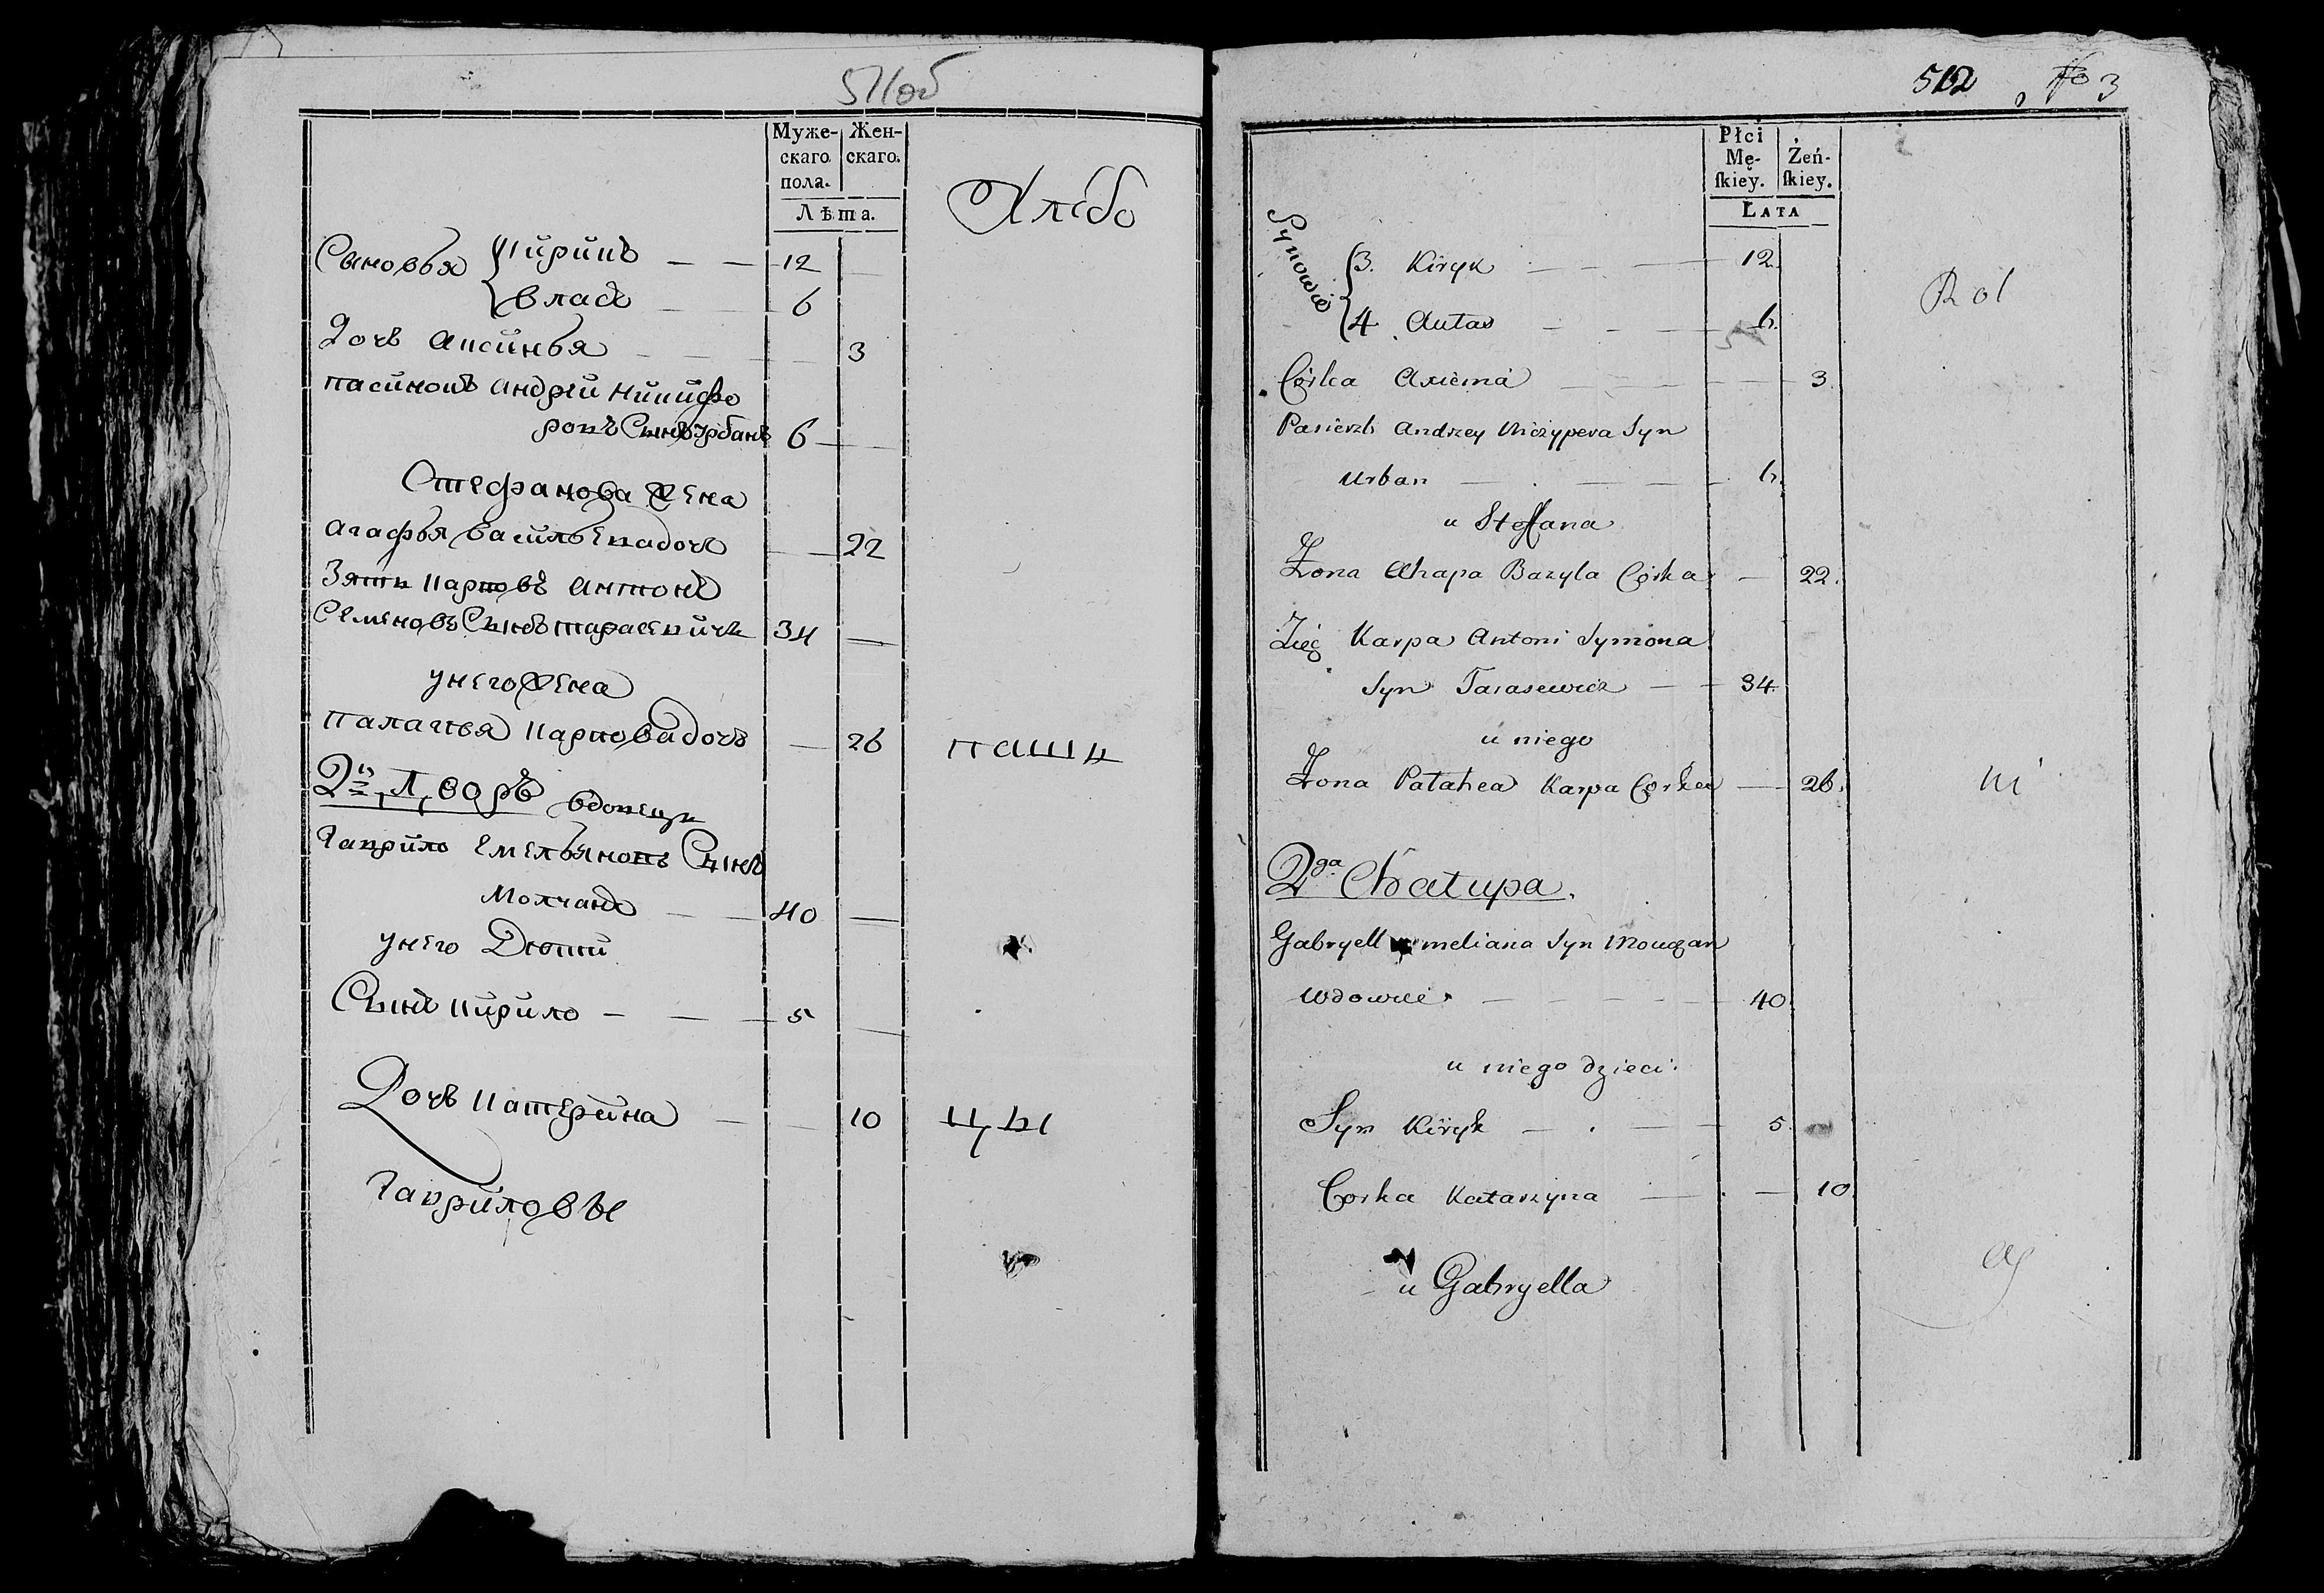 511об
Муже-
скаго
пола.
Жен-
скаго.
Лѣта.
Хлебо
Сыновья
Кирикъ — — 12 —
Власъ — — 6
Дочь Аксинья — — — 3
пасинокъ Андрей Никифо
ровъ Сынъ Урбанъ 6 —
Стефанова жена
Агафья Васильева дочь — 22
Зять Карповъ Антонъ
Семеновъ Сынъ Тарасевичъ 34 —
у него жена
Палагья Карпова дочь — 26
паши
2й Дворъ вдовецъ
Гаврило Емельяновъ Сынъ
Молчанъ — — 40 —
у него Дети
Сынъ Кирило — — 5 —
Дочь Катерина — — 10
цы
Гавриловы
512 No 3
Płci
Mę-
ſkiey.
Żeń-
ſkiey.
LATA
Synowie
3. Kiryk — — 12.
Rol
4. Autas — — — 6.
Córka Axiema — — — 3.
Pasierzb Andrzey Niczypera Syn
Urban — — — 6.
u Steffana
Żona Ahapa Bazyla Córka — 22.
Zięć Karpa Antoni Symona
Syn Tarasewicz — — 34.
u niego
Żona Palahea Karpa Corka — 26.
ni
2ga Chatupa.
Gabryell Omeliana Syn Mouczan
Wdowiec — — — — 40.
u niego dzieci.
Syn Kiryk — — — 5.
Corka Katarzyna — — 10.
cy
u Gabryella